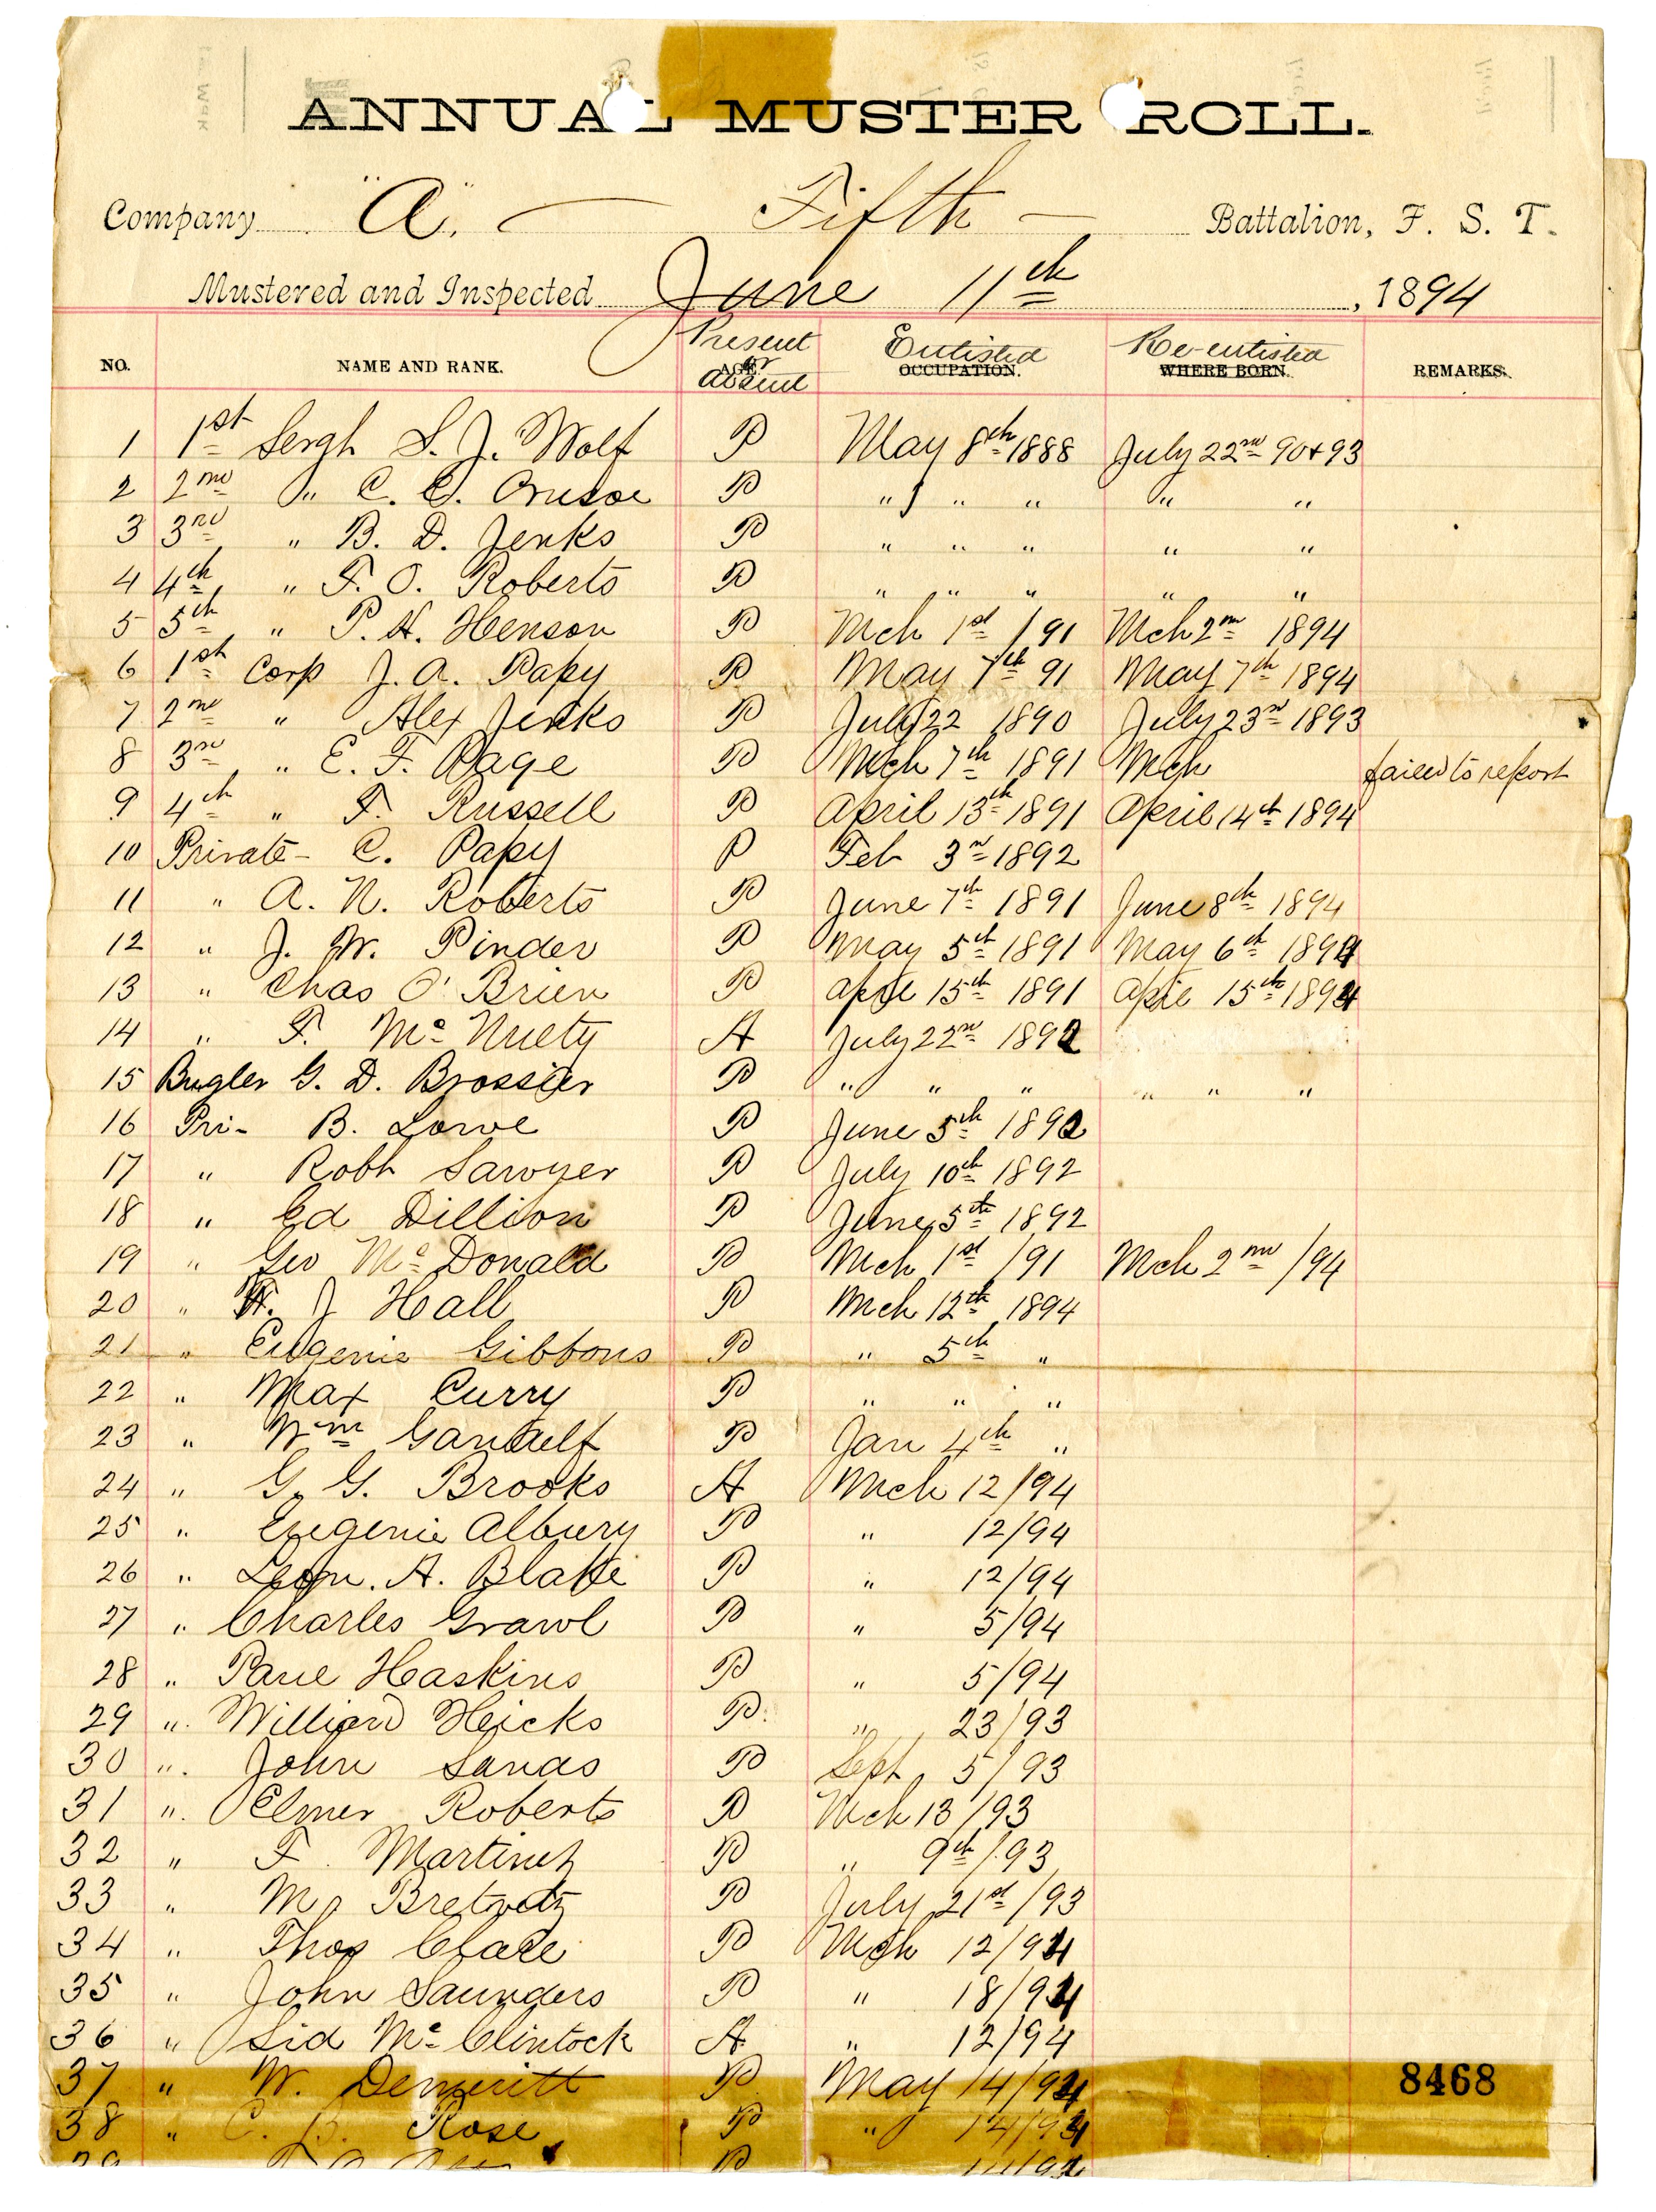 ANNUAL MUSTER ROLL.
Company "A". — Fifth — Battalion, F. S. T.
Mustered and Inspected June 11th, 1894
NO. NAME AND RANK. Present or Absent AGE. Enlisted OCCUPATION. Re-enlisted WHERE BORN. REMARKS.
1 1st Sergt S. J. Wolf P May 8th 1888 July 22nd 90+93
2 2nd " C. C. Crusoe P " " " " "
3 3rd " B. D. Jenks P " " " " "
4 4th " F. O. Roberts P " " " " "
5 5th " P. H. Henson P Mch 1st /91 Mch 2nd 1894
6 1st Corp J. A. Papy P May 7th 91 May 7th 1894
7 2nd " Alex Jenks P July 22 1890 July 23rd 1893
8 3rd " E. F. Page P Mch 7th 1891 Mch failed to report
9 4th " F. Russell P April 13th 1891 April 14th 1894
10 Private - C. Papy P Feb 3rd 1892
11 " A. N. Roberts P June 7th 1891 June 8th 1894
12 " J. W. Pinder P May 5th 1891 May 6th 1894
13 " Chas O'Brien P April 15th 1891 April 15th 1894
14 " F. Mc Nulty A July 22nd 1892
15 Bugler G. D. Brossier P " " " " " "
16 Pri- B. Lowe P June 5th 1892
17 " Robt Sawyer P July 10th 1892
18 " Ed Dillion P June 5th 1892
19 " Geo Mc Donald P Mch 1st /91 Mch 2nd /94
20 " W. J Hall P Mch 12th 1894
21 " Eugenie Gibbons P " 5th "
22 " Max Curry P " " "
23 " Wm Gandulf P Jan 4th "
24 " G. G. Brooks A Mch 12/94
25 " Eugenie Albury P " 12/94
26 " Leon. A. Blake P " 12/94
27 " Charles Grawl P " 5/94
28 " Paul Haskins P " 5/94
29 " Williard Hicks P " 23/93
30 " John Sands P Sept 5/93
31 " Elmer Roberts P Mch 13/93
32 " F. Martinez P " 9th/93
33 " M. P July 21st/93
34 " Thos P Mch 12/94
35 " John Saunders P " 18/94
36 " Sid Mc Clintock A " 12/94
37 " W. Demeritt P May 14/94 8468
38 " C. B. Rose P " 14/94
39 P 14/94